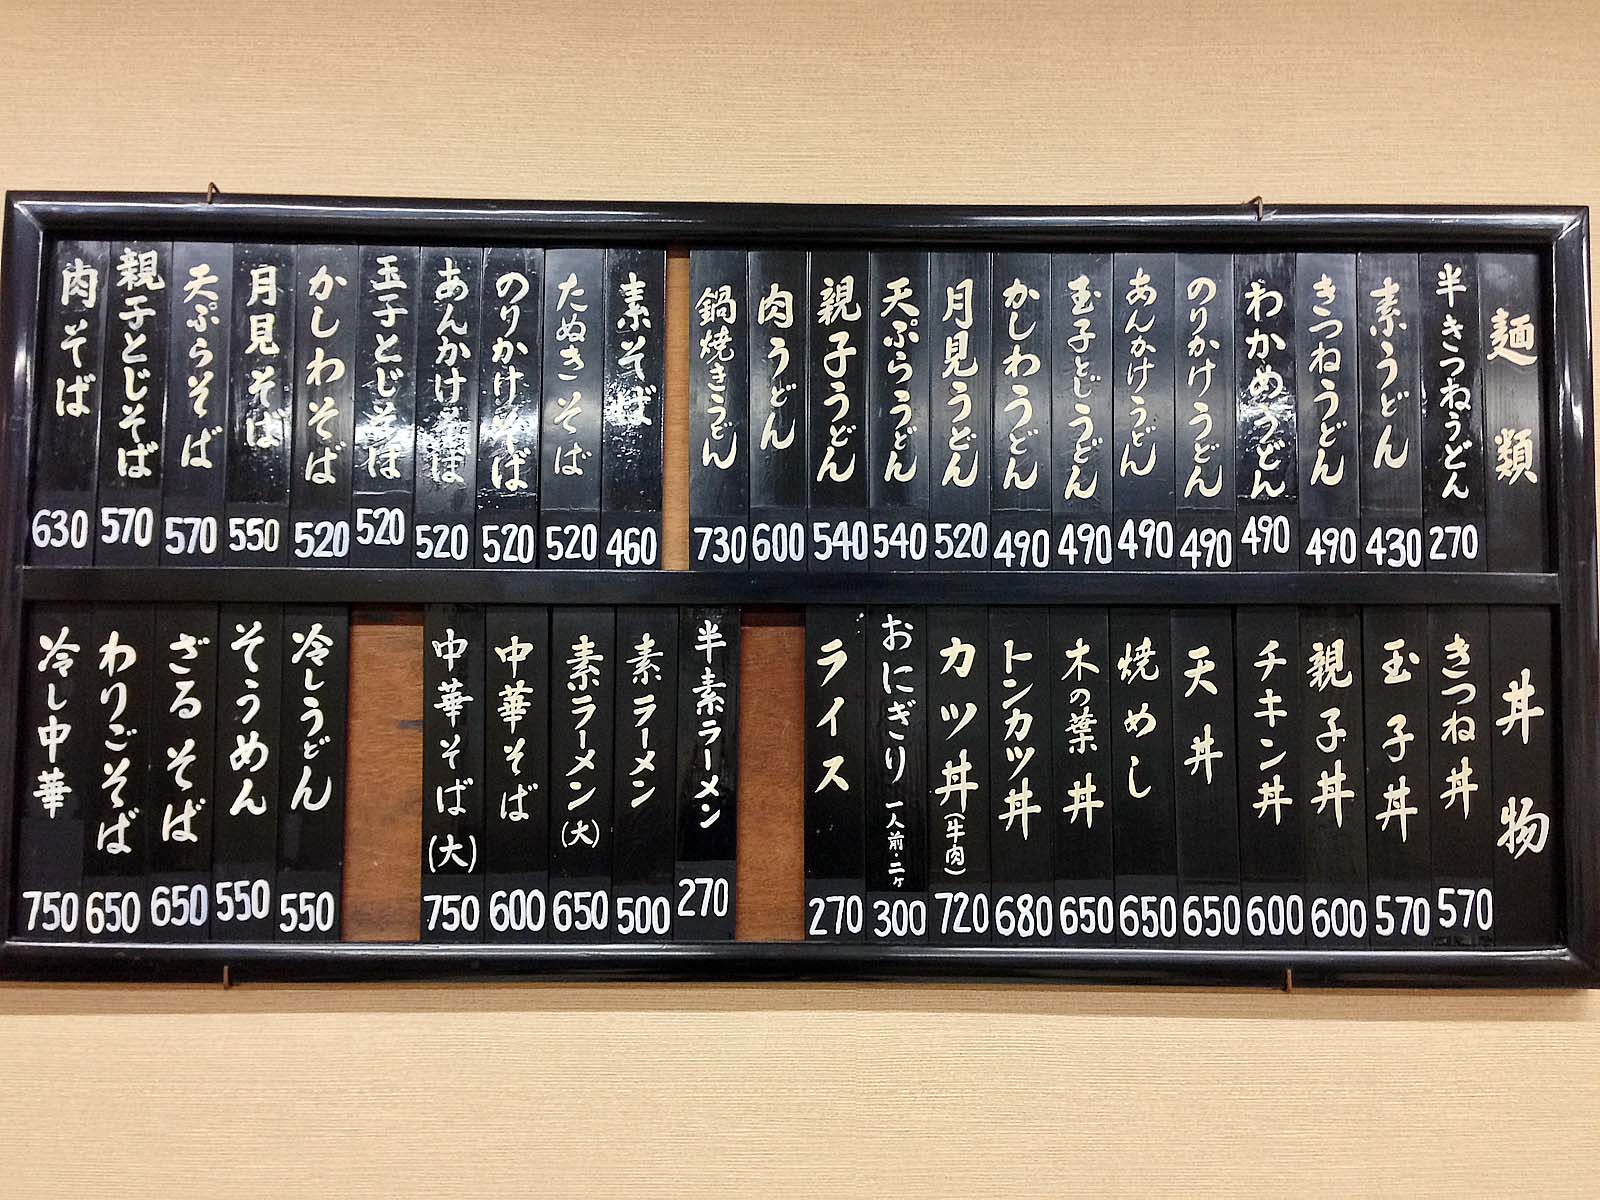 麺類
半きつねうどん 270
素うどん 430
きつねうどん 490
わかめうどん 490
のりかけうどん 490
あんかけうどん 490
玉子とじうどん 490
かしわうどん 490
月見うどん 520
天ぷらうどん 540
親子うどん 540
肉うどん 600
鍋焼きうどん 730
素そば 460
たぬきそば 520
のりかけそば 520
あんかけそば 520
玉子とじそば 520
かしわそば 520
月見そば 550
天ぷらそば 570
親子とじそば 570
肉そば 630
丼物
きつね丼 570
玉子丼 570
親子丼 600
チキン丼 600
天丼 650
焼めし 650
木の葉丼 650
トンカツ丼 680
カツ丼(牛肉) 720
おにぎり一人前・二ヶ 300
ライス 270
半素ラーメン 270
素ラーメン 500
素ラーメン(大) 650
中華そば 600
中華そば(大) 750
冷しうどん 550
そうめん 550
ざるそば 650
わりごそば 650
冷し中華 750